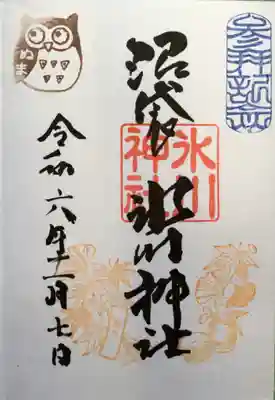 参拝記念
沼袋 氷川神社
氷川
神社
令和六年十二月七日
ぬま